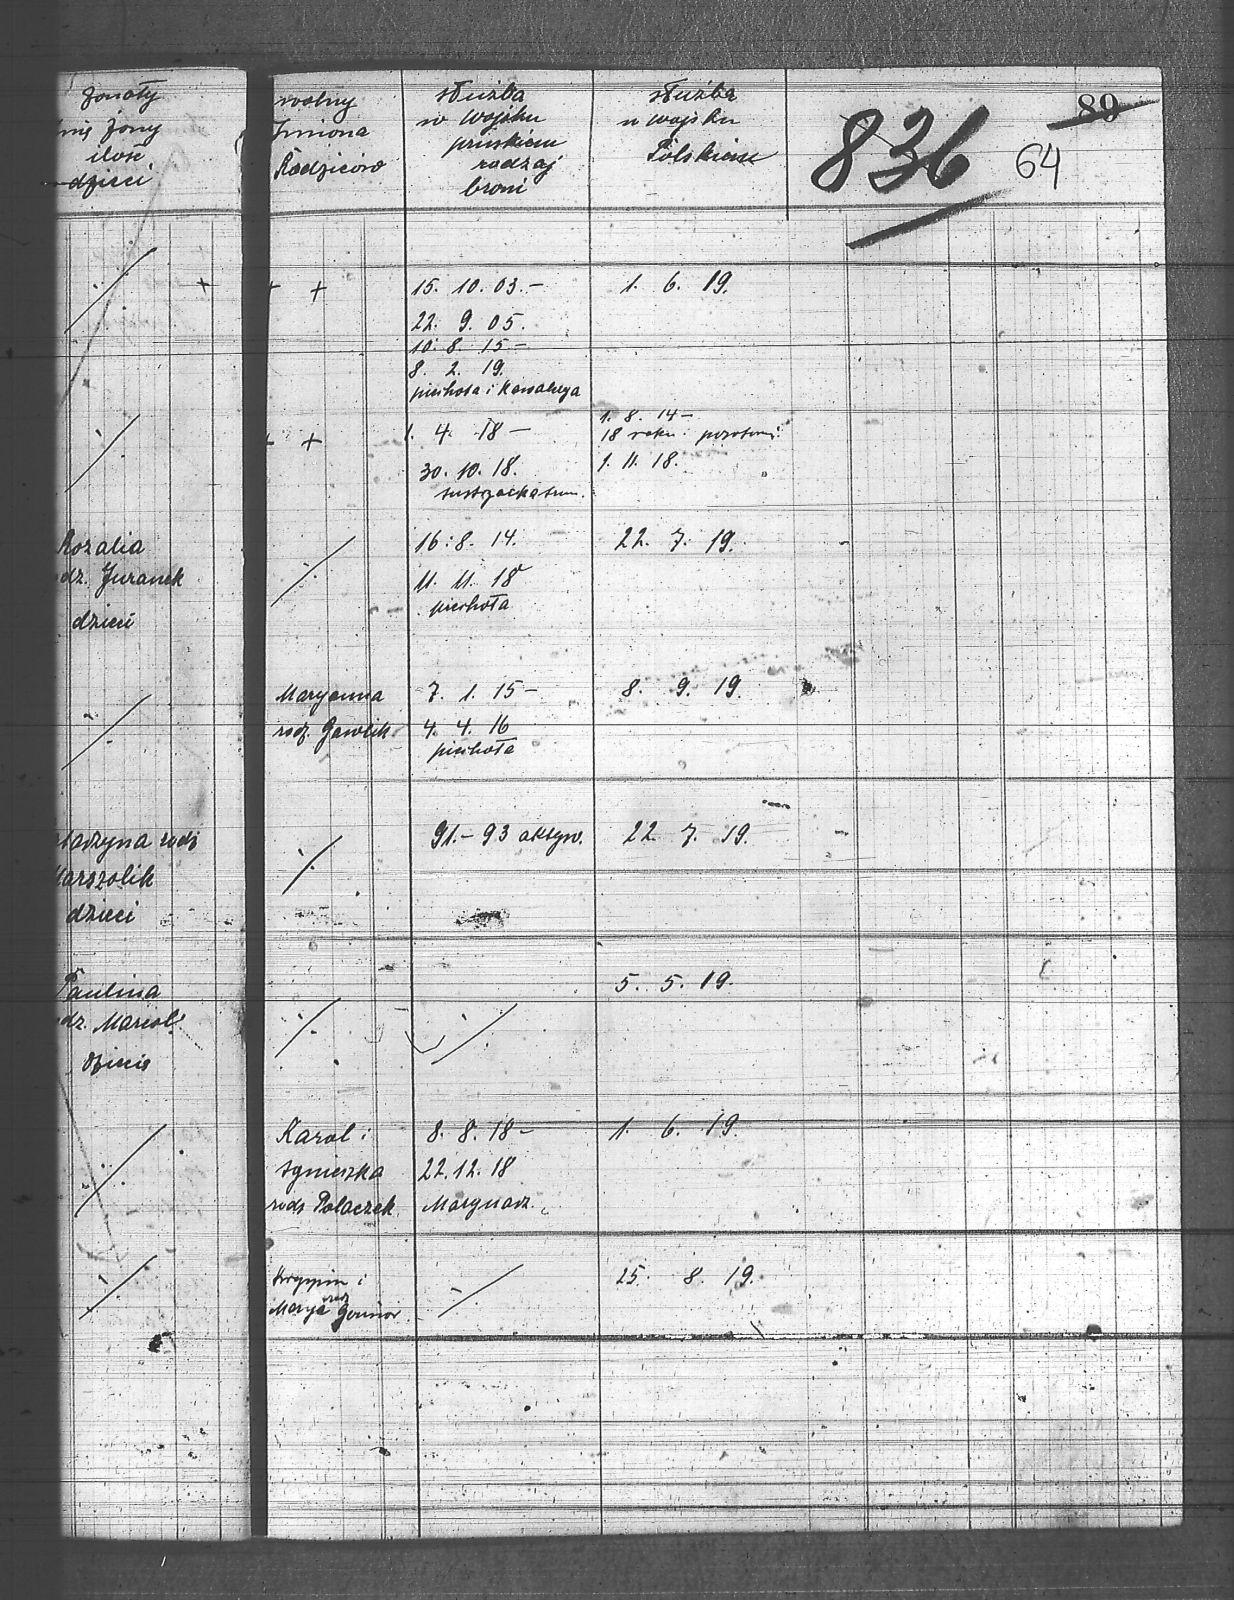 żonaty
imię żony
ilość
dzieci
wolny
Imiona
Rodziców
służba
w wojsku
pruskiem
rodzaj
broni
służba
w wojsku
Polskiem
836
80
64
+
+ +
15. 10. 03. –
22. 9. 05.
10. 8. 15 –
8. 2. 19.
piechota i Kawalerya
1. 6. 19.
+ +
1. 4. 18 –
30. 10. 18.
1. 8. 14 –
18 roku
1. 11. 18.
Rozalia
dz. Juranek
dzieci
16. 8. 14.
11. 11. 18
piechota
22. 7. 19.
Maryanna
rodz. Gawlik
7. 1. 15 –
4. 4. 16
piechota
8. 9. 19.
tarzyna rodz
Marszolik
dzieci
91. – 93 aktyw.
22. 7. 19.
Paulina
dz. Marcol
dziecie
5. 5. 19.
Karol i
Agnieszka
rodz Polaczek
8. 8. 18 –
22. 12. 18
Marynarz.
1. 6. 19.
i
Marya rodz
25. 8. 19.